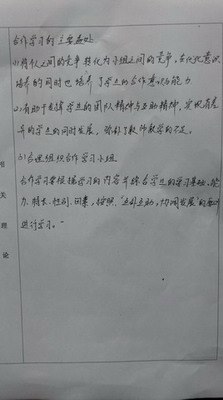 合作学习的主要益处
(1)将个人之间的竞争转化为小组之间的竞争,在优化意识
培养的同时也培养了学生的合作意识与能力
(2)有助于发挥学生的团队精神与互助精神,实现有差
异的学生的同时发展,弥补了教师教学的不足。
(3)合理组织合作学习小组
合作学习要根据学习的内容并综合学生的学习基础、能
力、特长、性别、因素,按照"互补互助,协调发展"的原则
进行学习。"
相
关
理
论